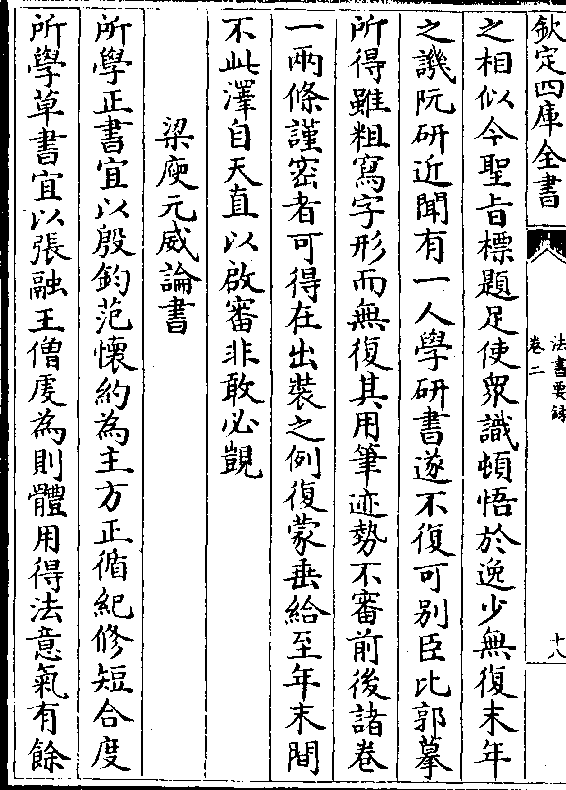 欽定四庫全書
法書要錄
卷二
十八
之相似今聖旨標題足使衆識頓悟於逸少無復末年
之譏阮研近聞有一人學研書遂不復可别臣比郭摹
所得雖粗寫字形而無復其用筆迹勢不審前後諸卷
一兩條謹密者可得在出裝之例復蒙垂給至年末間
不此澤自天直以啟審非敢必覬
梁庾元威論書
所學正書宜以殷鈞范懷約為主方正循紀修短合度
所學草書宜以張融王僧虔為則體用得法意氣有餘